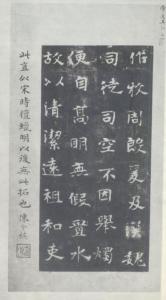 作牧周殷爰及漢魏
司徒司空不因舉燭
便自高明無假置水
故以清潔遠祖和吏
此直似宋時氊蠟明以後無此拓也